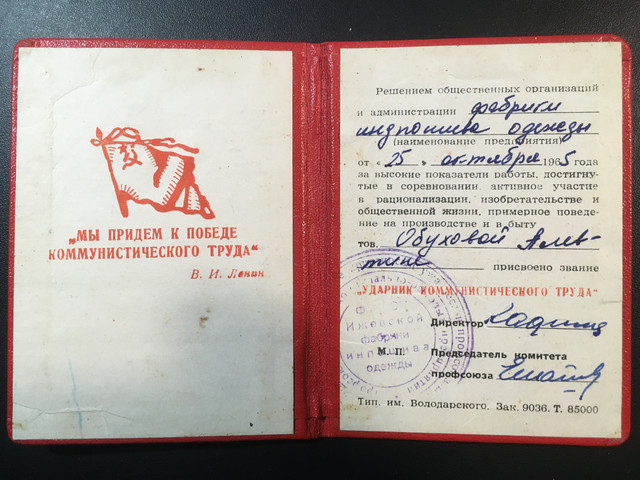 „МЫ ПРИДЕМ К ПОБЕДЕ
КОММУНИСТИЧЕСКОГО ТРУДА“
В. И. Ленин
Решением общественных организаций
и администрации фабрики
индпошива одежды
(наименование предприятия)
от „25„ октября 1965 года
за высокие показатели работы, достигну-
тые в соревновании, активное участие
в рационализации, изобретательстве и
общественной жизни, примерное поведе-
ние на производстве и в быту
тов. Обуховой Алев-
тине
присвоено звание
"УДАРНИК КОММУНИСТИЧЕСКОГО ТРУДА"
Директор
М. П. Председатель комитета
профсоюза
Ижевской
фабрики
индпошива
одежды
Тип. им. Володарского. Зак. 9036. Т. 85000